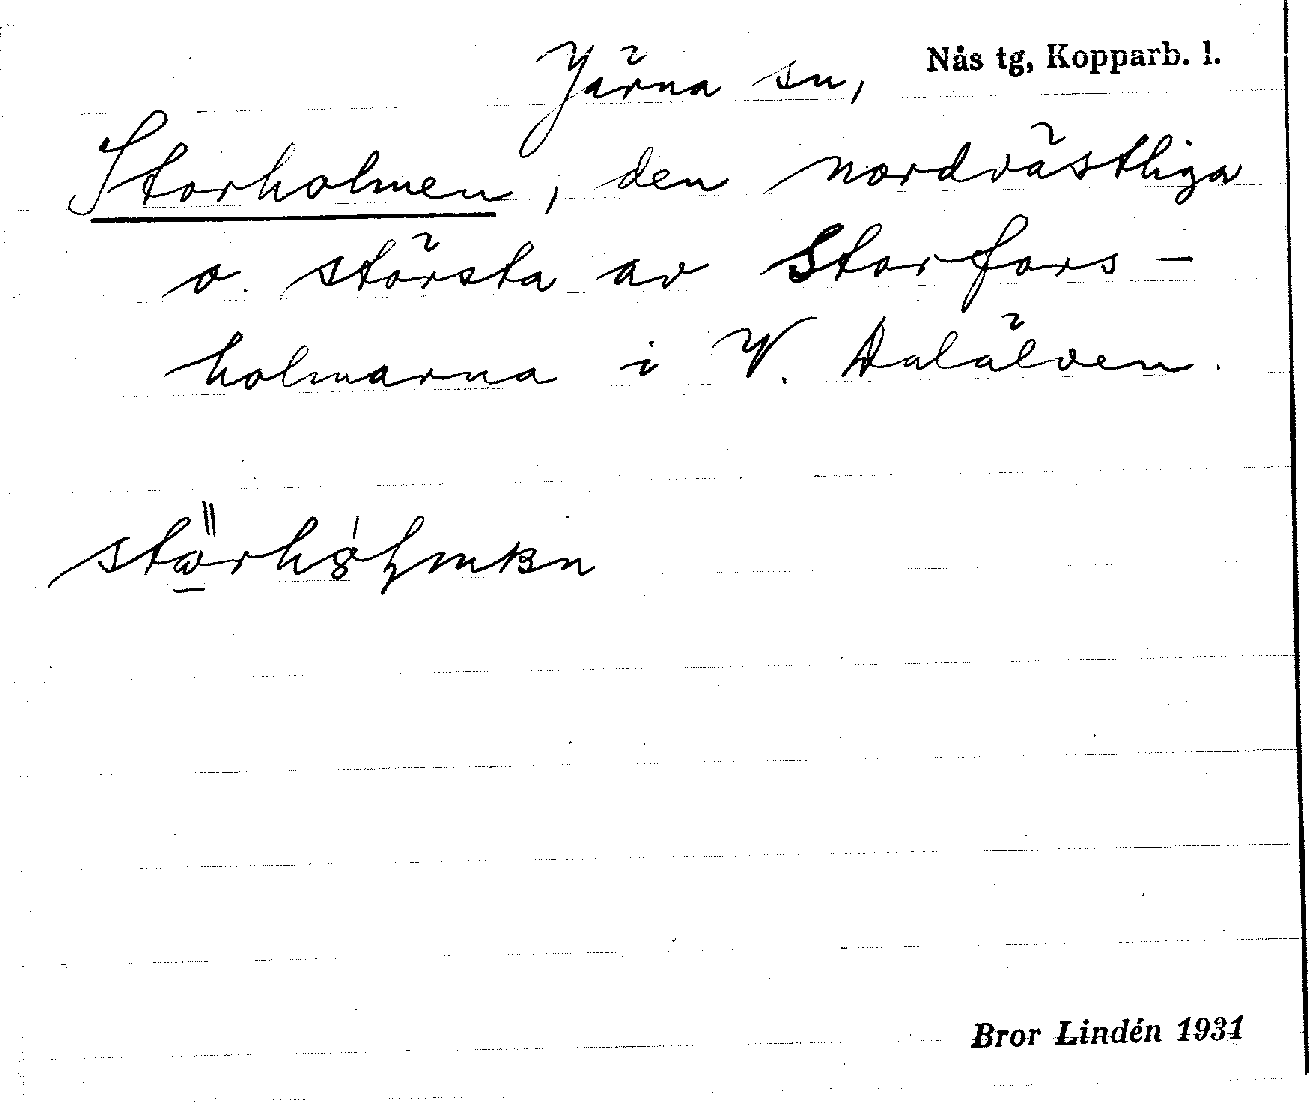 Järna sn, Nås tg, Kopparb. l.
Storholmen, den nordvästliga
o. största av Storfors-
holmarna i V. Dalälven.
Bror Lindén 1931